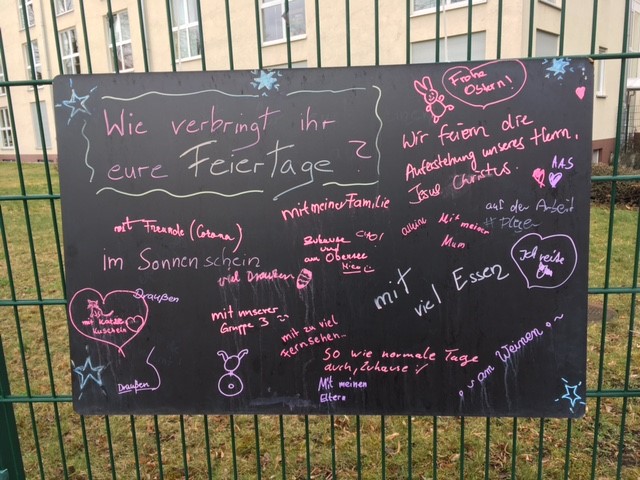 Wie verbringt ihr
eure Feiertage?
Frohe
Ostern!
Wir feiern die
Auferstehung unseres Herrn,
Jesus Christus.
A.A.S
mit meiner Familie
auf der Arbeit
# Pflege
allein
Mit meiner
Mum
mit Freunde (Corona)
Zuhause
und
am
im Sonnenschein
viel Draußen
Ich reise
mit
viel Essen
Draußen
mit Katze
Kuscheln
mit unserer
Gruppe 3
mit zu viel
Fernsehen...
So wie normale Tage
auch, Zuhause :/
am Weinen
Draußen
Mit meinen
Eltern